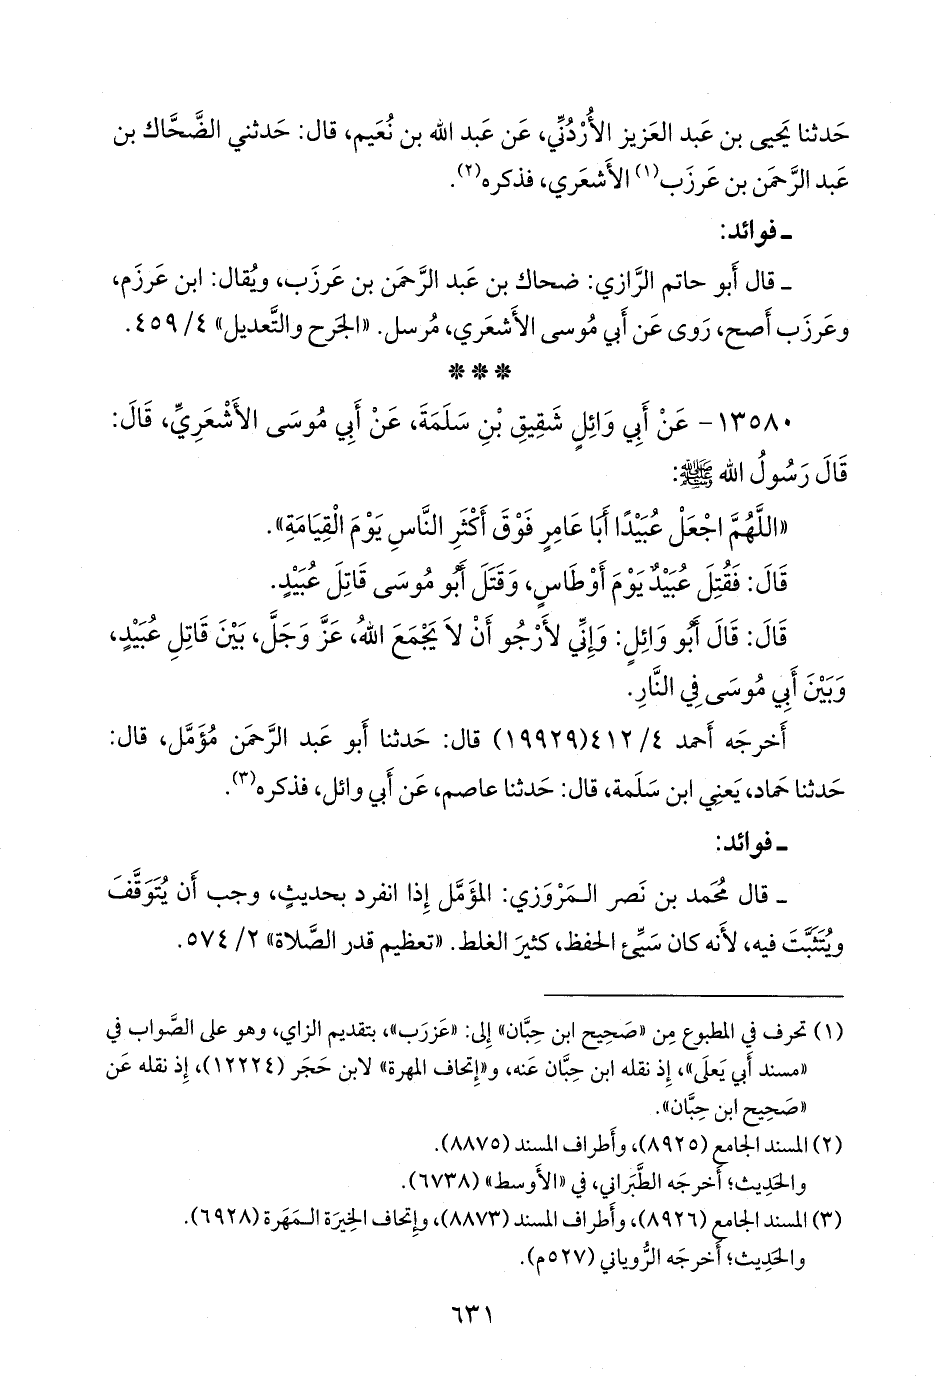 حَدثنا يَحيى بن عَبد العَزيز الأُرْدُنِّي، عَن عَبد الله بن نُعَيم، قال: حَدثني الضَّحَّاك بن
عَبد الرَّحمَن بن عَرزَب(١) الأَشعَري، فذكره(٢).
ـ فوائد:
ـ قال أَبو حاتم الرَّازي: ضحاك بن عَبد الرَّحمَن بن عَرزَب، ويُقال: ابن عَرزَم،
وعَرزَب أَصح، رَوى عَن أَبي مُوسى الأَشعَري، مُرسل. «الجَرح والتَّعديل» ٤/ ٤٥٩.
* * *
١٣٥٨٠- عَنْ أَبِي وَائِلٍ شَقِيقِ بْنِ سَلَمَةَ، عَنْ أَبِي مُوسَى الأَشْعَرِيِّ، قَالَ:
قَالَ رَسُولُ الله ﷺ:
«اللَّهُمَّ اجْعَلْ عُبَيْدًا أَبَا عَامِرٍ فَوْقَ أَكْثَرِ النَّاسِ يَوْمَ الْقِيَامَةِ».
قَالَ: فَقُتِلَ عُبَيْدٌ يَوْمَ أَوْطَاسٍ، وَقَتَلَ أَبُو مُوسَى قَاتِلَ عُبَيْدٍ.
قَالَ: قَالَ أَبُو وَائِلٍ: وَإِنِّي لأَرْجُو أَنْ لاَ يَجْمَعَ اللهُ، عَزَّ وَجَلَّ، بَيْنَ قَاتِلِ عُبَيْدٍ،
وَبَيْنَ أَبِي مُوسَى فِي النَّارِ.
أَخرجَه أَحمد ٤/ ٤١٢(١٩٩٢٩) قال: حَدثنا أَبو عَبد الرَّحمَن مُؤَمَّل، قال:
حَدثنا حَماد، يَعنِي ابن سَلَمة، قال: حَدثنا عاصم، عَن أَبي وائل، فذكره(٣).
ـ فوائد:
ـ قال مُحَمد بن نَصر الـمَرْوَزي: المؤَمَّل إِذا انفرد بحديثٍ، وجب أَن يُتَوَقَّفَ
ويُتَثَبَّتَ فيه، لأَنه كان سَيِّئ الحفظ، كثيرَ الغلط. «تعظيم قدر الصَّلاة» ٢/ ٥٧٤.
(١) تحرف في المطبوع مِن «صَحِيح ابن حِبَّان» إلى: «عَزرَب»، بتقديم الزاي، وهو على الصَّواب في
«مسند أَبي يَعلَى»، إِذ نقله ابن حِبَّان عنه، و«إتحاف المهرة» لابن حَجَر (١٢٢٢٤)، إِذ نقله عَن
«صَحِيح ابن حِبَّان».
(٢) المسند الجامع (٨٩٢٥)، وأَطراف المسند (٨٨٧٥).
والحَدِيث؛ أَخرجَه الطَّبَراني، في «الأَوسط» (٦٧٣٨).
(٣) المسند الجامع (٨٩٢٦)، وأَطراف المسند (٨٨٧٣)، وإِتحاف الخِيرَة الـمَهَرة (٦٩٢٨).
والحَدِيث؛ أَخرجَه الرُّوياني (٥٢٧م).
٦٣١